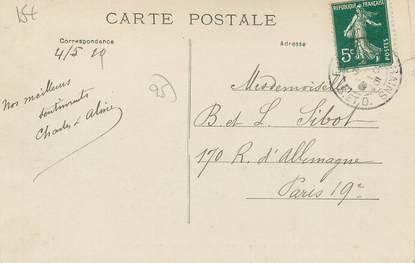 15t
CARTE POSTALE
Correspondance
Adresse
4/5 10
Nos meilleurs
sentiments
Charles & Aline
95
RÉPUBLIQUE FRANÇAISE
5c
Mesdemoiselles
B et L. Sibot
170 R. d'Allemagne
Paris 19e